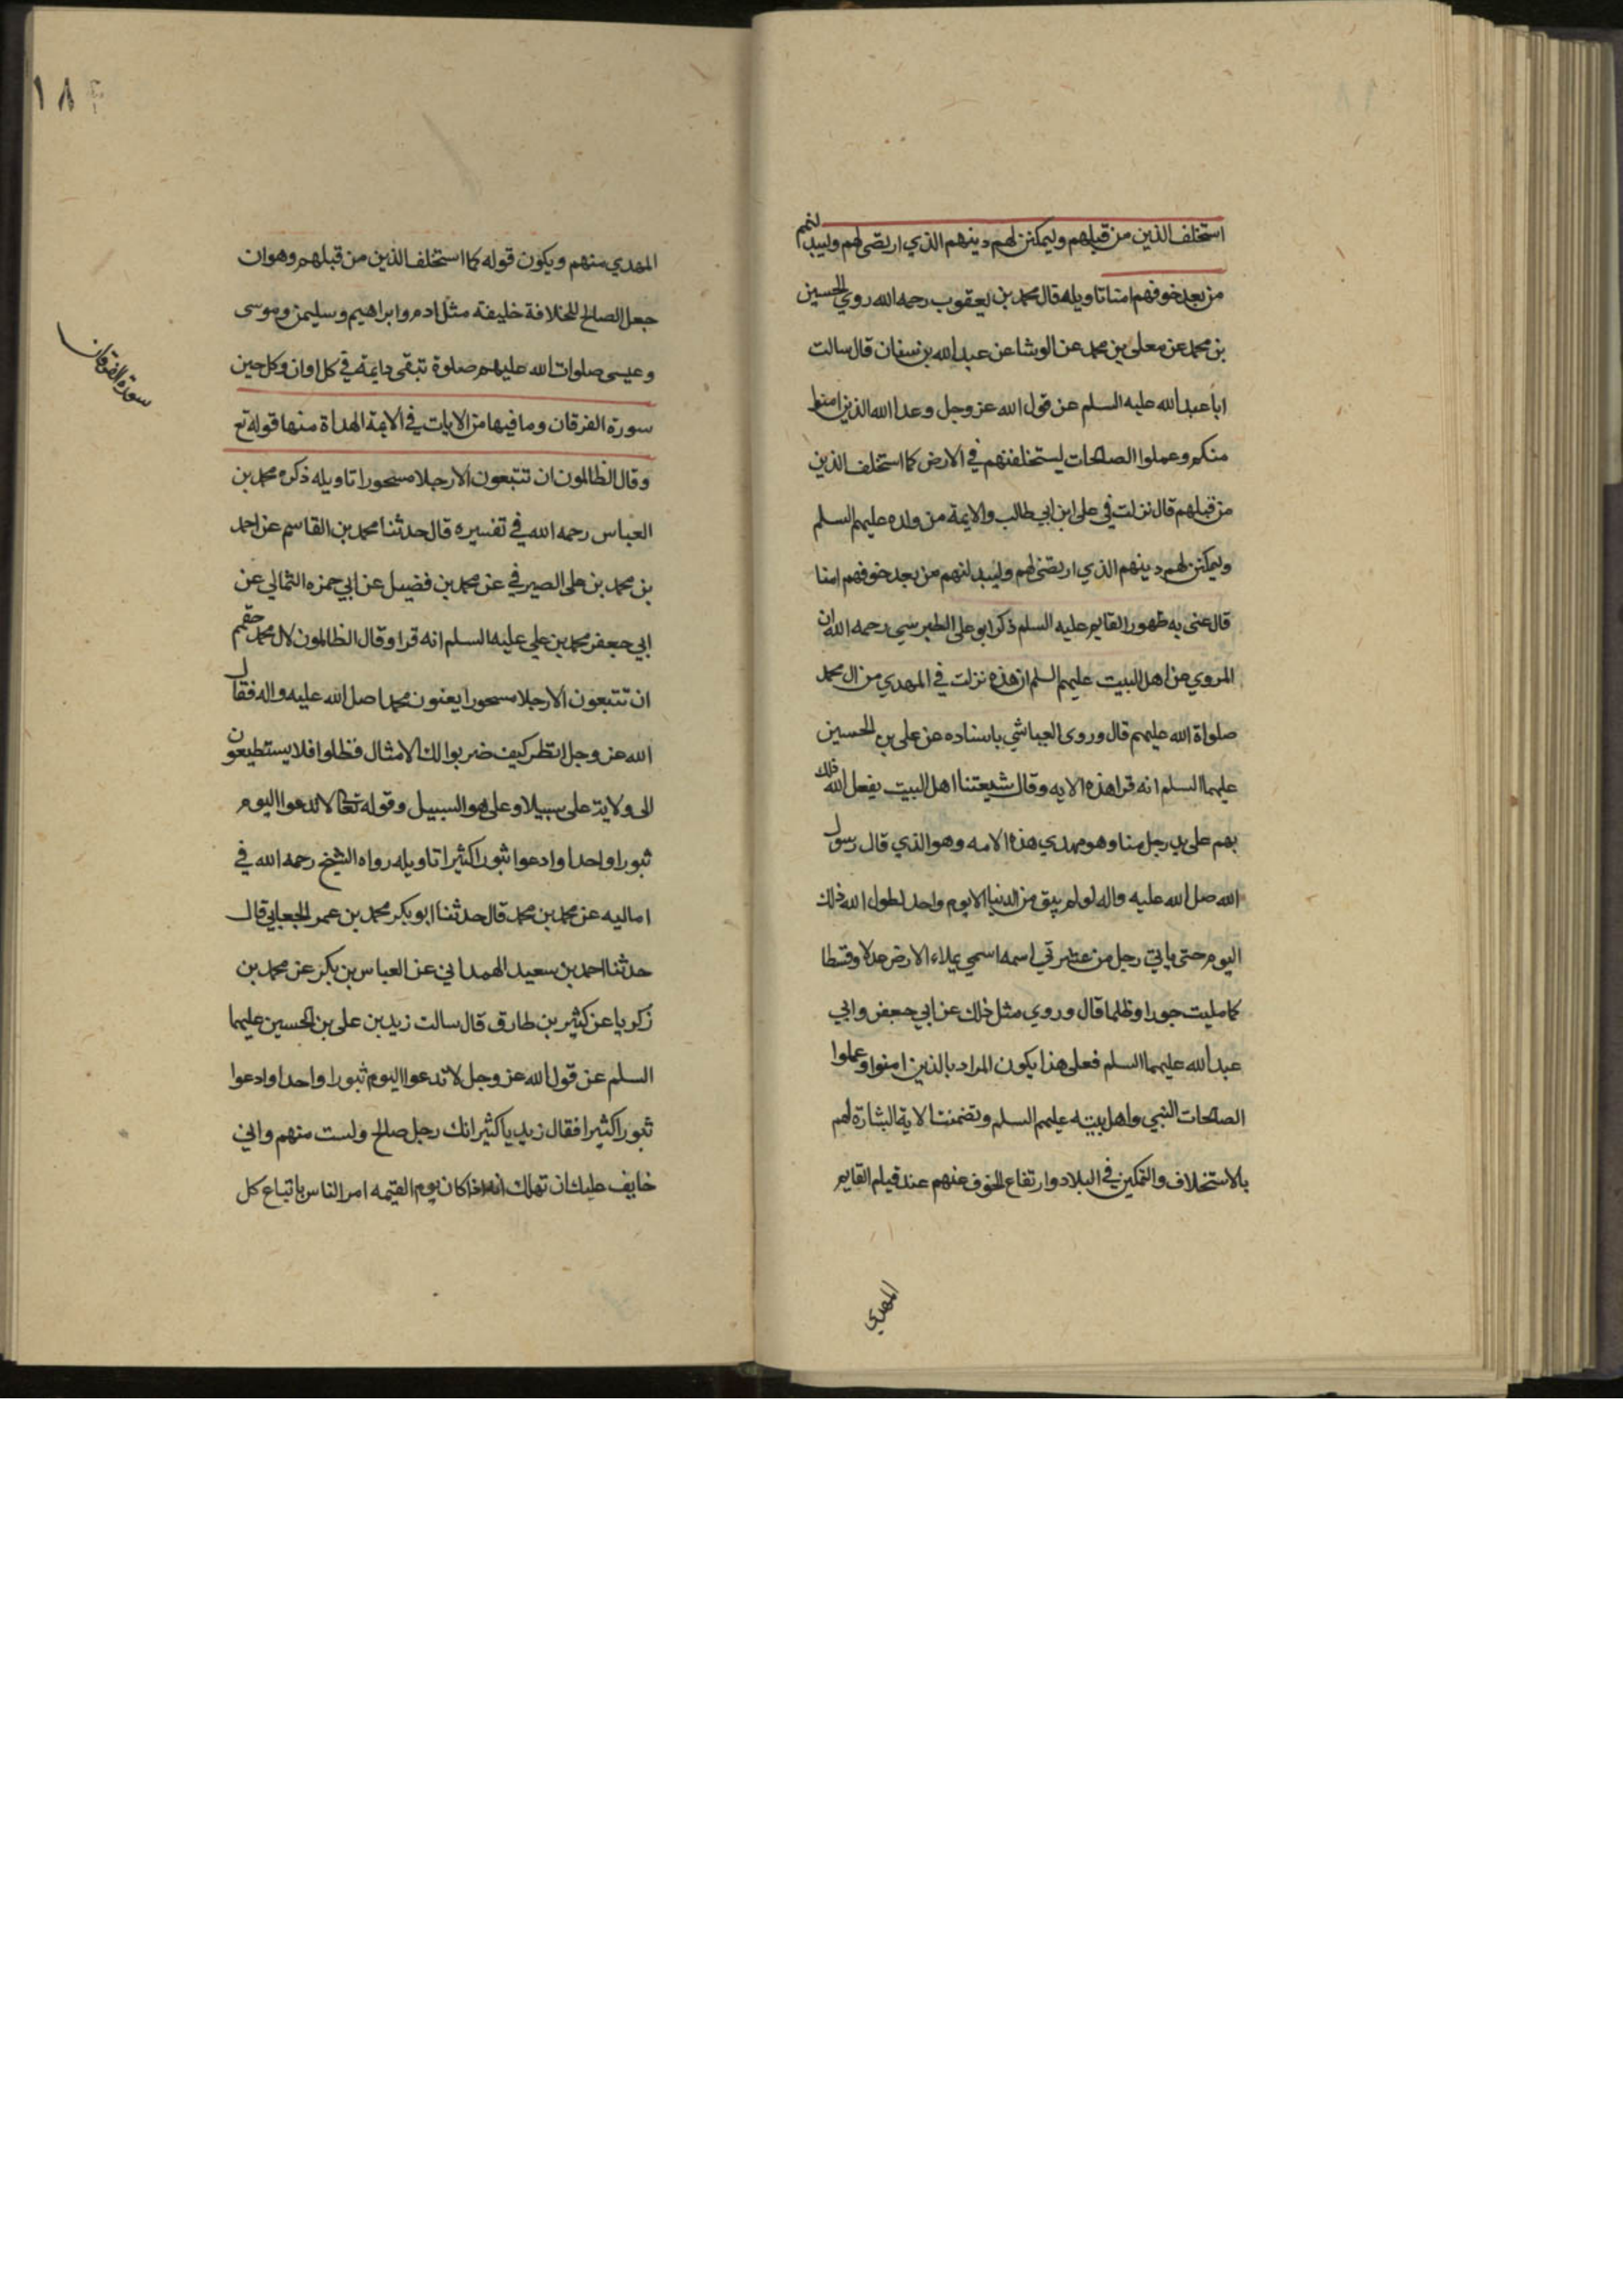 استخلف الذين من قبلهم وليمكنن لهم دينهم الذي ارتضى لهم وليبدلنهم
من بعد خوفهم امنا تاويله قال محمد بن يعقوب رحمه الله روي الحسين
بن محمد عن معلى بن محمد عن الوشا عن عبد الله بن سنان قال سالت
ابا عبد الله عليه السلم عن قول الله عز وجل وعد الله الذين امنوا
منكم وعملوا الصالحات ليستخلفنهم في الارض كما استخلف الذين
من قبلهم قال نزلت في على ابن ابي طالب والايمة من ولده عليهم السلم
وليمكنن لهم دينهم الذي ارتضى لهم وليبدلنهم من بعد خوفهم امنا
قال عنى به ظهور القايم عليه السلم ذكر ابو على الطبرسي رحمه الله ان
المروي عن اهل البيت عليهم السلم ان هذه نزلت في المهدي من ال محمد
صلواة الله عليهم قال وروى العياشي باسناده عن على بن الحسين
عليهما السلم انه قرا هذه الايه وقال شيعتنا اهل البيت يفعل الله ذلك
بهم على يد رجل منا وهو مهدي هذه الامه وهو الذي قال رسول
الله صل الله عليه واله لو لم يبق من الدنيا الا يوم واحد لطول الله ذلك
اليوم حتى ياتي رجل من عترتي اسمه اسمي يملاء الارض عدلا وقسطا
كما مليت جورا وظلما قال وروي مثل ذلك عن ابي جعفر وابي
عبد الله عليهما السلم فعلى هذا يكون المراد بالذين امنوا وعملوا
الصالحات النبي واهل بيته عليهم السلم وتضمنت الاية البشارة لهم
بالاستخلاف والتمكين في البلاد وارتفاع الخوف عنهم عند قيام القايم
المهدي
١٨
المهدي منهم ويكون قوله كما استخلف الذين من قبلهم وهو ان
جعل الصالح للخلافة خليفة مثل ادم وابراهيم وسليمن وموسى
وعيسى صلوات الله عليهم صلوة تبقى دايمة في كل اوان وكل حين
سورة الفرقان
سورة الفرقان وما فيها من الايات في الايمة الهداة منها قوله تع
وقال الظالمون ان تتبعون الا رجلا مسحورا تاويله ذكره محمد بن
العباس رحمه الله في تفسيره قال حدثنا محمد بن القاسم عن احمد
بن محمد بن على الصيرفي عن محمد بن فضيل عن ابي حمزه الثمالي عن
ابي جعفر محمد بن علي عليه السلم انه قرا وقال الظالمون لال محمد حقهم
ان تتبعون الا رجلا مسحورا يعنون محمدا صل الله عليه واله فقال
الله عز وجل انظر كيف ضربوا لك الامثال فظلوا فلا يستطيعون
الى ولاية على سبيلا وعلى هو السبيل وقوله تعالى لا تدعوا اليوم
ثبورا واحدا وادعوا ثبورا كثيرا تاويله رواه الشيخ رحمه الله في
اماليه عن محمد بن محمد قال حدثنا ابو بكر محمد بن عمر الجعابي قال
حدثنا احمد بن سعيد الهمداني عن العباس بن بكر عن محمد بن
زكريا عن كثير بن طارق قال سالت زيد بن على بن الحسين عليهما
السلم عن قول الله عز وجل لا تدعوا اليوم ثبورا واحدا وادعوا
ثبورا كثيرا فقال زيد يا كثير انك رجل صالح ولست منهم واني
خايف عليك ان تهلك انه اذا كان يوم القيمه امر الناس باتباع كل